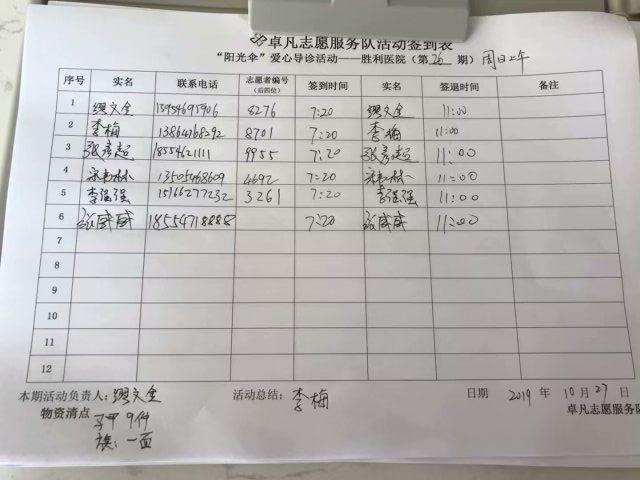 卓凡志愿服务队活动签到表
“阳光伞”爱心导诊活动——胜利医院（第26期） 周日上午
序号 实名 联系电话 志愿者编号（后四位） 签到时间 实名 签退时间 备注
1 缪文全 13954695906 8276 7:20 缪文全 11:00
2 李梅 13864768292 8701 7:20 李梅 11:00
3 张彦超 18554621111 9955 7:20 张彦超 11:00
4 13505468609 4692 7:20 11:00
5 李强强 15166277232 3261 7:20 李强强 11:00
6 张威威 18554718888 7:20 张威威 11:00
7
8
9
10
11
12
本期活动负责人：缪文全 活动总结：李梅 日期 2019年10月27日
物资清点 马甲 9件 卓凡志愿服务队
旗：一面